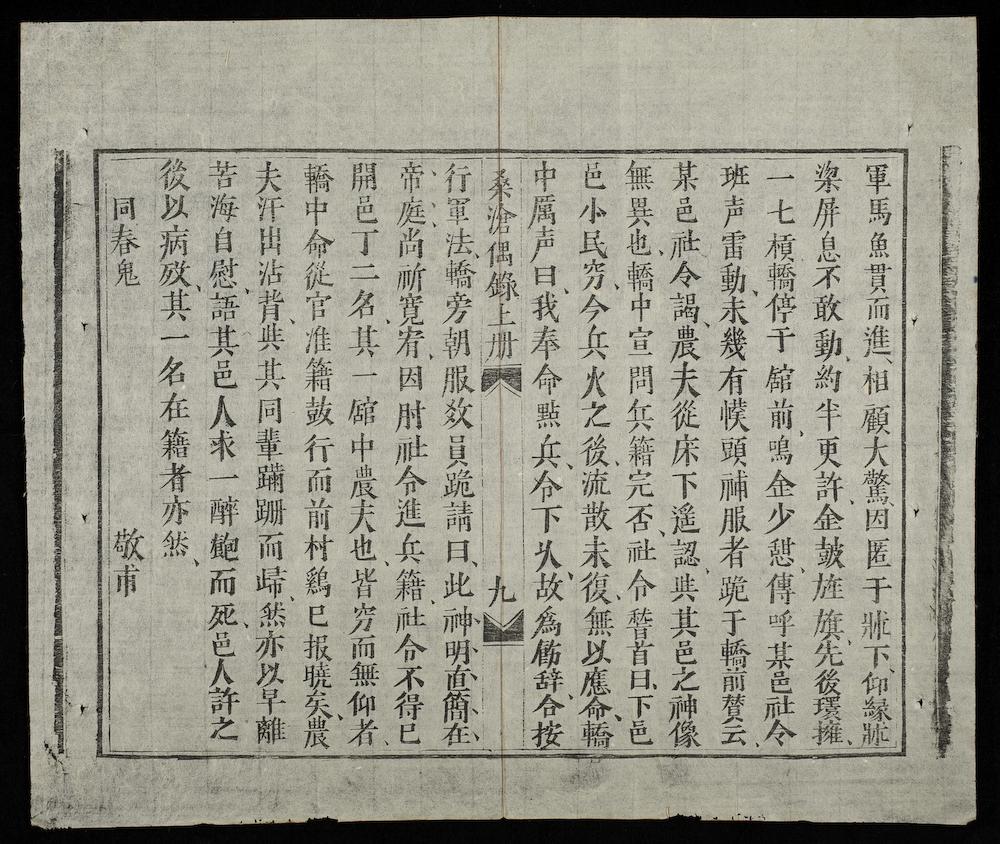 軍馬魚貫而進、相顧大驚、因匿于牀下、仰緣牀
梁屏息不敢動、約半更許、金鼓旌旗、先後環擁、
一七槓轎停于舘前、鳴金少憇、傳呼某邑社令
班声雷動、未幾有幞頭補服者跪于轎前賛云、
某邑社令謁、農夫從床下遥認、與其邑之神像
無異也、轎中宣問兵籍完否、社令稽首曰、下邑
邑小民穷、今兵火之後、流散未復、無以應命、轎
中厲声曰、我奉命㸃兵、令下乆、故爲飾辞、合按
桑滄偶錄上册
九
行軍法、轎旁朝服数員跪請曰、此神明直簡、在
帝庭、尚祈寛宥、因肘社令進兵籍、社令不得已
開邑丁二名、其一舘中農夫也、皆穷而無仰者、
轎中命從官准籍鼓行而前、村鷄已报曉矣、農
夫汗出沾背、與其同輩蹣跚而歸、然亦以早離
苦海自慰、語其邑人求一醉飽而死、邑人許之
後以病殁、其一名在籍者亦然、
同春鬼
敬甫